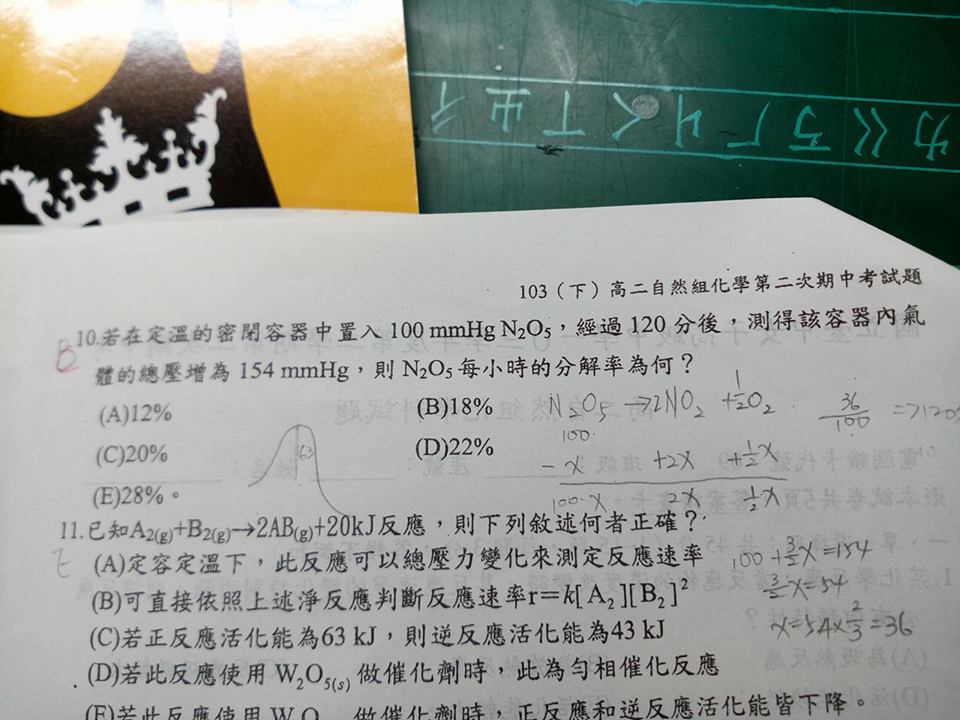 ㄔㄓㄒㄑㄐㄏㄎㄍㄌ
103（下）高二自然組化學第二次期中考試題
B 10.若在定溫的密閉容器中置入 100 mmHg N₂O₅，經過 120 分後，測得該容器內氣
體的總壓增為 154 mmHg，則 N₂O₅ 每小時的分解率為何？
(A)12% (B)18%
(C)20% (D)22%
(E)28%。
N₂O₅ → 2NO₂ + 1/2 O₂
100
- x +2x + 1/2 x
100-x 2x 1/2 x
36/100 => 120
163
E 11.已知A₂(g)+B₂(g)→2AB(g)+20kJ反應，則下列敘述何者正確？
(A)定容定溫下，此反應可以總壓力變化來測定反應速率
(B)可直接依照上述淨反應判斷反應速率r＝k[ A₂ ][ B₂ ]²
(C)若正反應活化能為63 kJ，則逆反應活化能為43 kJ
(D)若此反應使用 W₂O₅(s) 做催化劑時，此為勻相催化反應
(E)若此反應使用 W₂O 做催化劑時，正反應和逆反應活化能皆下降。
100 + 3/2 x = 154
3/2 x = 54
x = 54 x 2/3 = 36